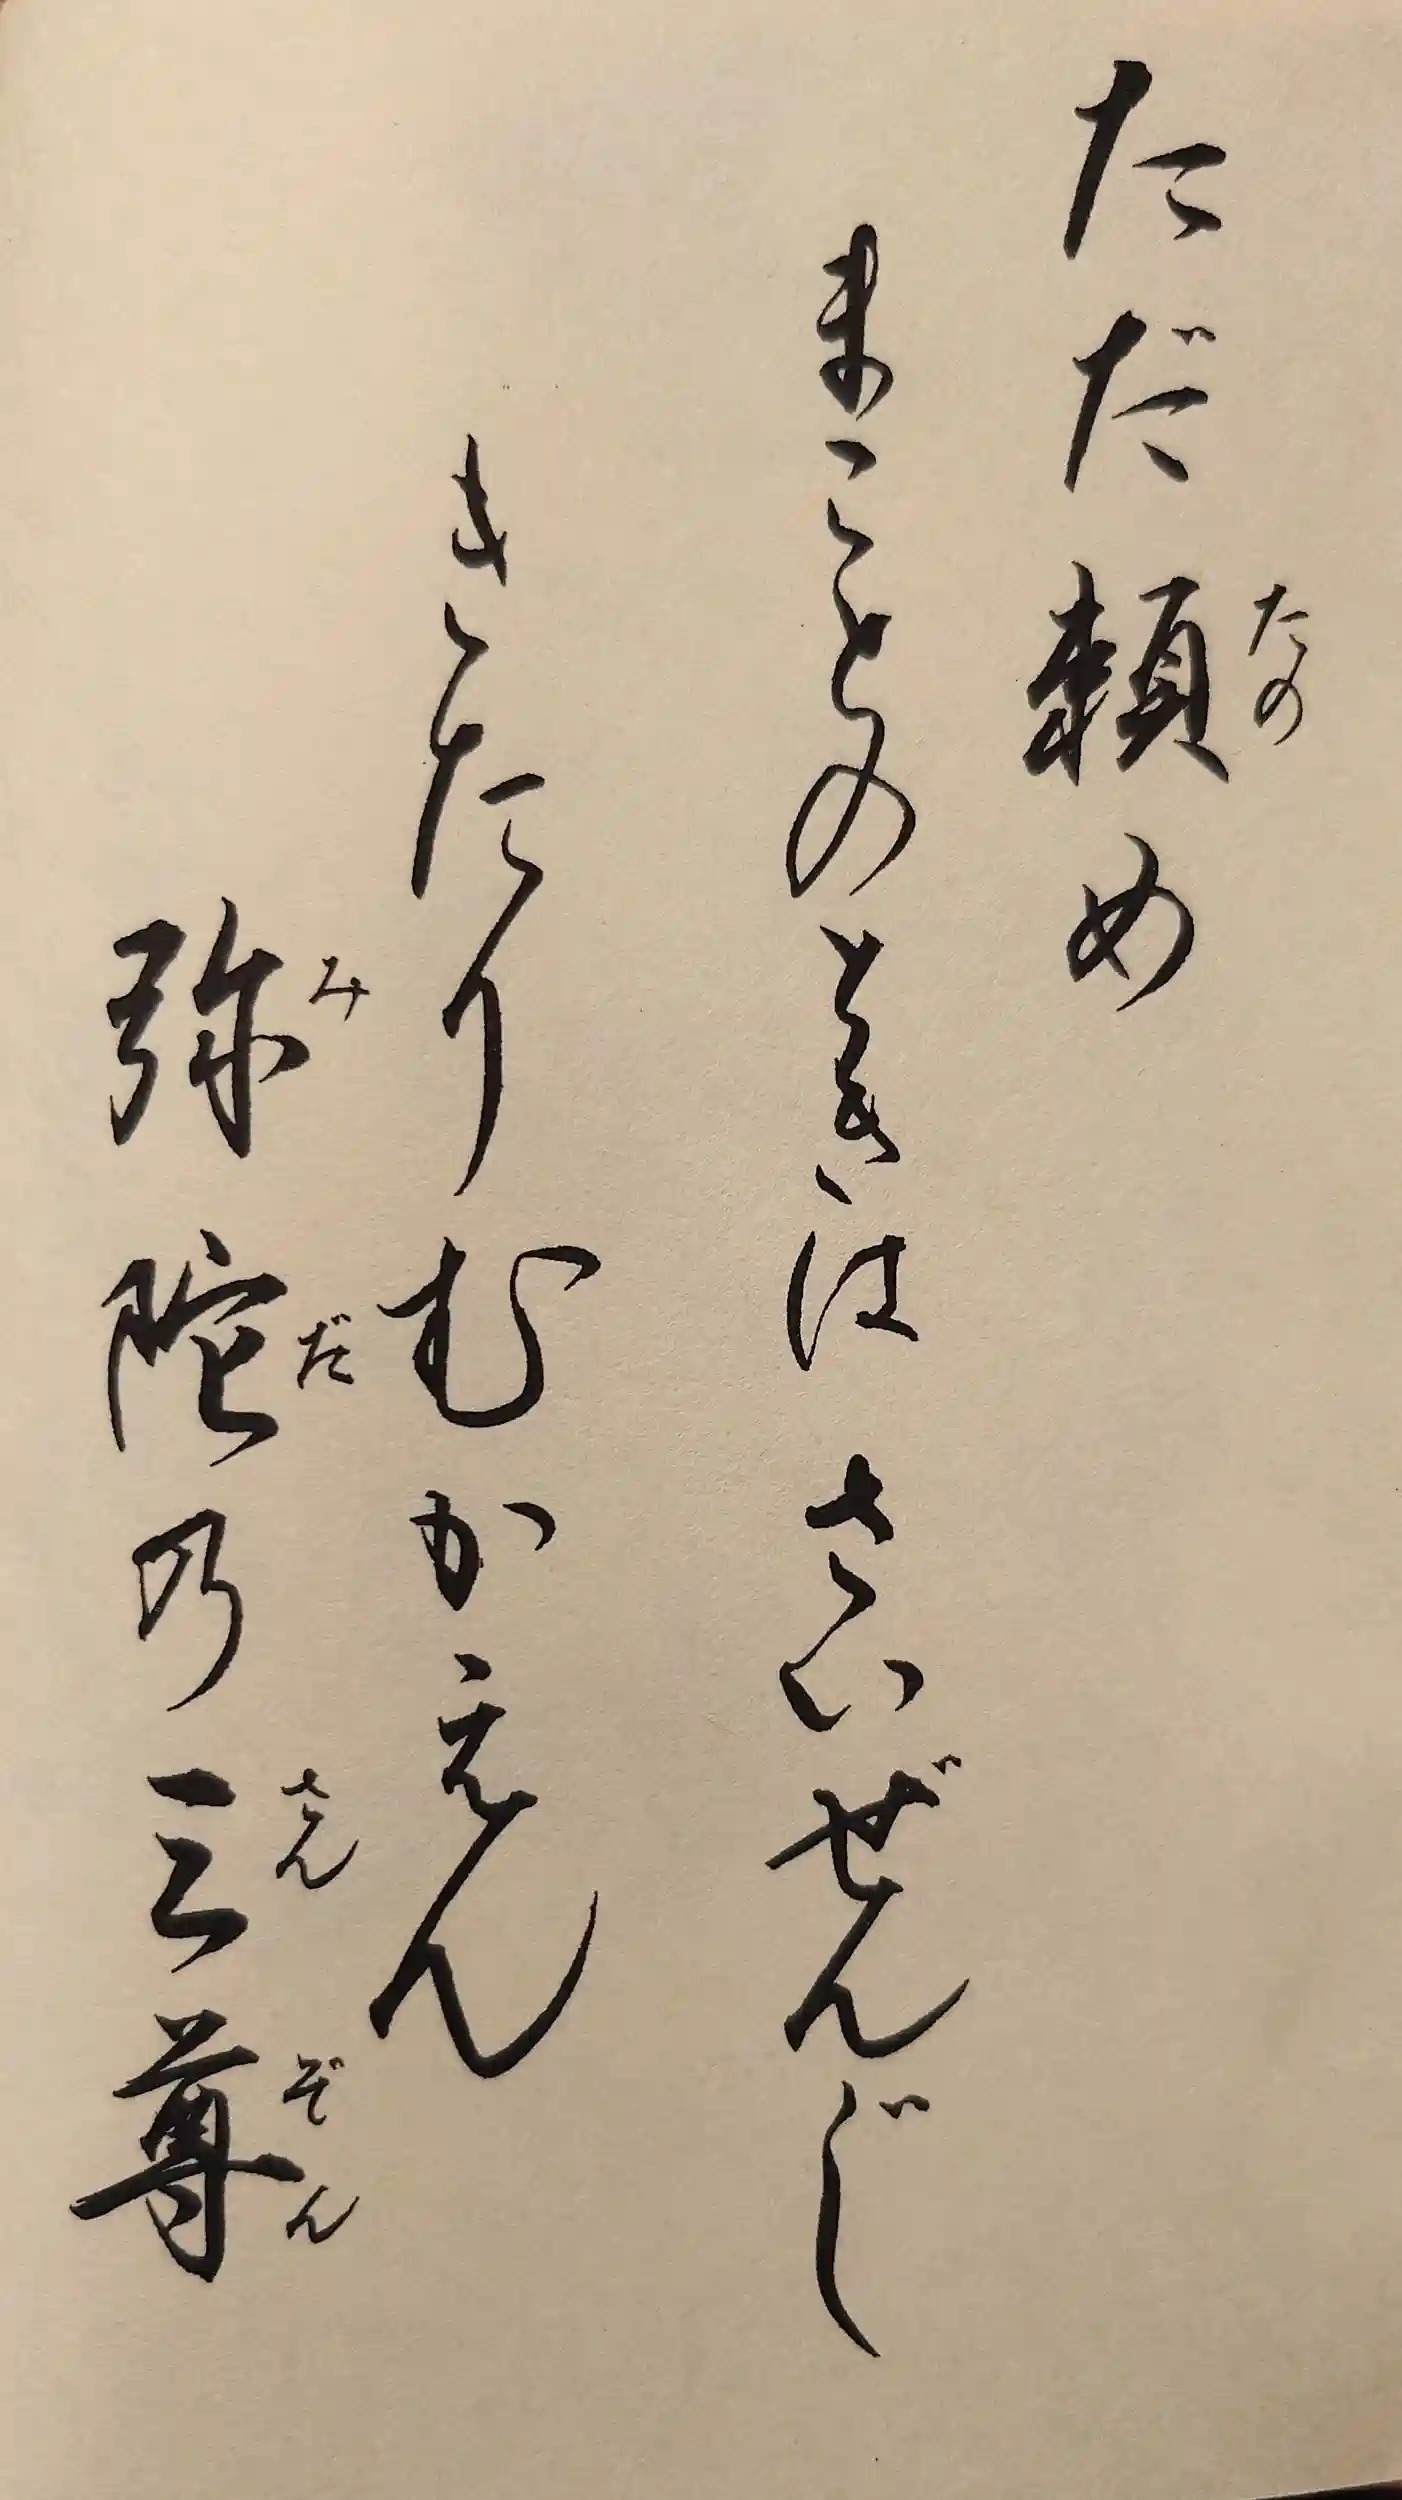 ただ頼め
たの
まことのときはさいぜんじ
きたりむかえん
弥陀の三尊
みださんぞん